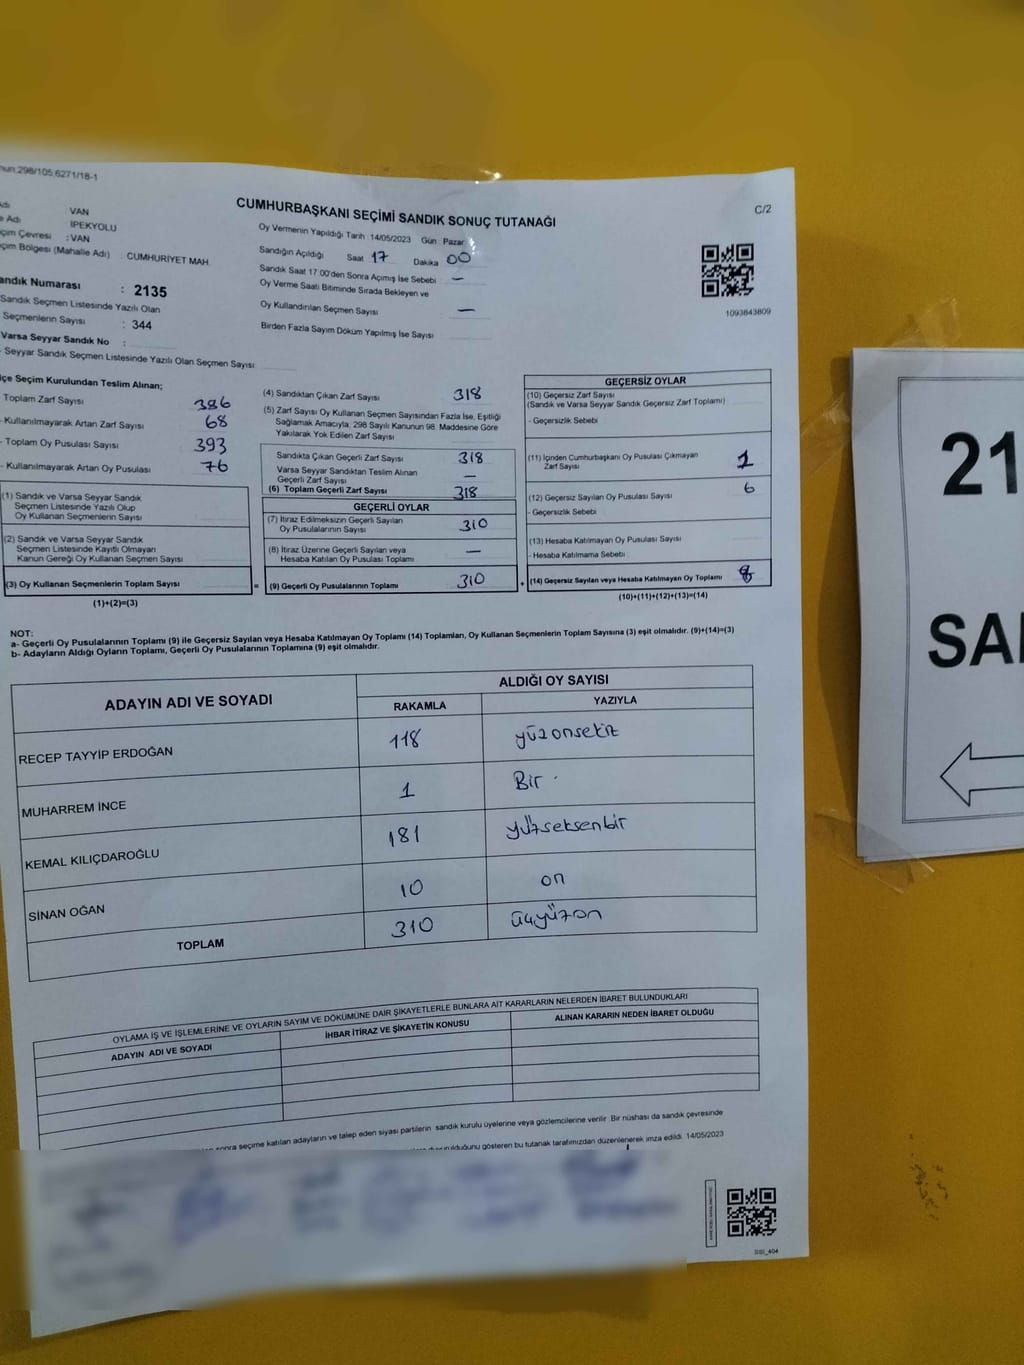 298/105.6271/18-1
CUMHURBAŞKANI SEÇİMİ SANDIK SONUÇ TUTANAĞI
C/2
VAN
Adı
İPEKYOLU
Çevresi : VAN
Bölgesi (Mahalle Adı) : CUMHURİYET MAH.
Numarası : 2135
Sandık Seçmen Listesinde Yazılı Olan
Seçmenlerin Sayısı : 344
Varsa Seyyar Sandık No :
Seyyar Sandık Seçmen Listesinde Yazılı Olan Seçmen Sayısı:
Oy Vermenin Yapıldığı Tarih :14/05/2023 Gün Pazar
Sandığın Açıldığı Saat 17 Dakika 00
Sandık Saat 17:00'den Sonra Açılmış İse Sebebi —
Oy Verme Saati Bitiminde Sırada Bekleyen ve
Oy Kullandırılan Seçmen Sayısı —
Birden Fazla Sayım Döküm Yapılmış İse Sayısı
1093843809
Seçim Kurulundan Teslim Alınan;
Toplam Zarf Sayısı 386
- Kullanılmayarak Artan Zarf Sayısı 68
- Toplam Oy Pusulası Sayısı 393
- Kullanılmayarak Artan Oy Pusulası 76
(1) Sandık ve Varsa Seyyar Sandık
Seçmen Listesinde Yazılı Olup
Oy Kullanan Seçmenlerin Sayısı
(2) Sandık ve Varsa Seyyar Sandık
Seçmen Listesinde Kayıtlı Olmayan
Kanun Gereği Oy Kullanan Seçmen Sayısı
(3) Oy Kullanan Seçmenlerin Toplam Sayısı
(1)+(2)=(3)
=
(4) Sandıktan Çıkan Zarf Sayısı 318
(5) Zarf Sayısı Oy Kullanan Seçmen Sayısından Fazla İse, Eşitliği
Sağlamak Amacıyla, 298 Sayılı Kanunun 98. Maddesine Göre
Yakılarak Yok Edilen Zarf Sayısı
Sandıkta Çıkan Geçerli Zarf Sayısı 318
Varsa Seyyar Sandıktan Teslim Alınan
Geçerli Zarf Sayısı —
(6) Toplam Geçerli Zarf Sayısı 318
GEÇERLİ OYLAR
(7) İtiraz Edilmeksizin Geçerli Sayılan
Oy Pusulalarının Sayısı 310
(8) İtiraz Üzerine Geçerli Sayılan veya
Hesaba Katılan Oy Pusulası Toplamı —
(9) Geçerli Oy Pusulalarının Toplamı 310
+
GEÇERSİZ OYLAR
(10) Geçersiz Zarf Sayısı
(Sandık ve Varsa Seyyar Sandık Geçersiz Zarf Toplamı)
- Geçersizlik Sebebi
(11) İçinden Cumhurbaşkanı Oy Pusulası Çıkmayan
Zarf Sayısı 1
(12) Geçersiz Sayılan Oy Pusulası Sayısı 6
- Geçersizlik Sebebi
(13) Hesaba Katılmayan Oy Pusulası Sayısı
- Hesaba Katılmama Sebebi
(14) Geçersiz Sayılan veya Hesaba Katılmayan Oy Toplamı
(10)+(11)+(12)+(13)=(14)
NOT:
a- Geçerli Oy Pusulalarının Toplamı (9) ile Geçersiz Sayılan veya Hesaba Katılmayan Oy Toplamı (14) Toplamları, Oy Kullanan Seçmenlerin Toplam Sayısına (3) eşit olmalıdır. (9)+(14)=(3)
b- Adayların Aldığı Oyların Toplamı, Geçerli Oy Pusulalarının Toplamına (9) eşit olmalıdır.
ADAYIN ADI VE SOYADI
ALDIĞI OY SAYISI
RAKAMLA YAZIYLA
RECEP TAYYİP ERDOĞAN 118 yüzonsekiz
MUHARREM İNCE 1 Bir
KEMAL KILIÇDAROĞLU 181 yüzseksenbir
SİNAN OĞAN 10 on
TOPLAM 310 üçyüzon
OYLAMA İŞ VE İŞLEMLERİNE VE OYLARIN SAYIM VE DÖKÜMÜNE DAİR ŞİKAYETLERLE BUNLARA AİT KARARLARIN NELERDEN İBARET BULUNDUKLARI
ADAYIN ADI VE SOYADI İHBAR İTİRAZ VE ŞİKAYETİN KONUSU ALINAN KARARIN NEDEN İBARET OLDUĞU
sonra seçime katılan adayların ve talep eden siyasi partilerin sandık kurulu üyelerine veya gözlemcilerine verilir. Bir nüshası da sandık çevresinde
gösteren bu tutanak tarafımızdan düzenlenerek imza edildi. 14/05/2023
SSI_404
21
SA